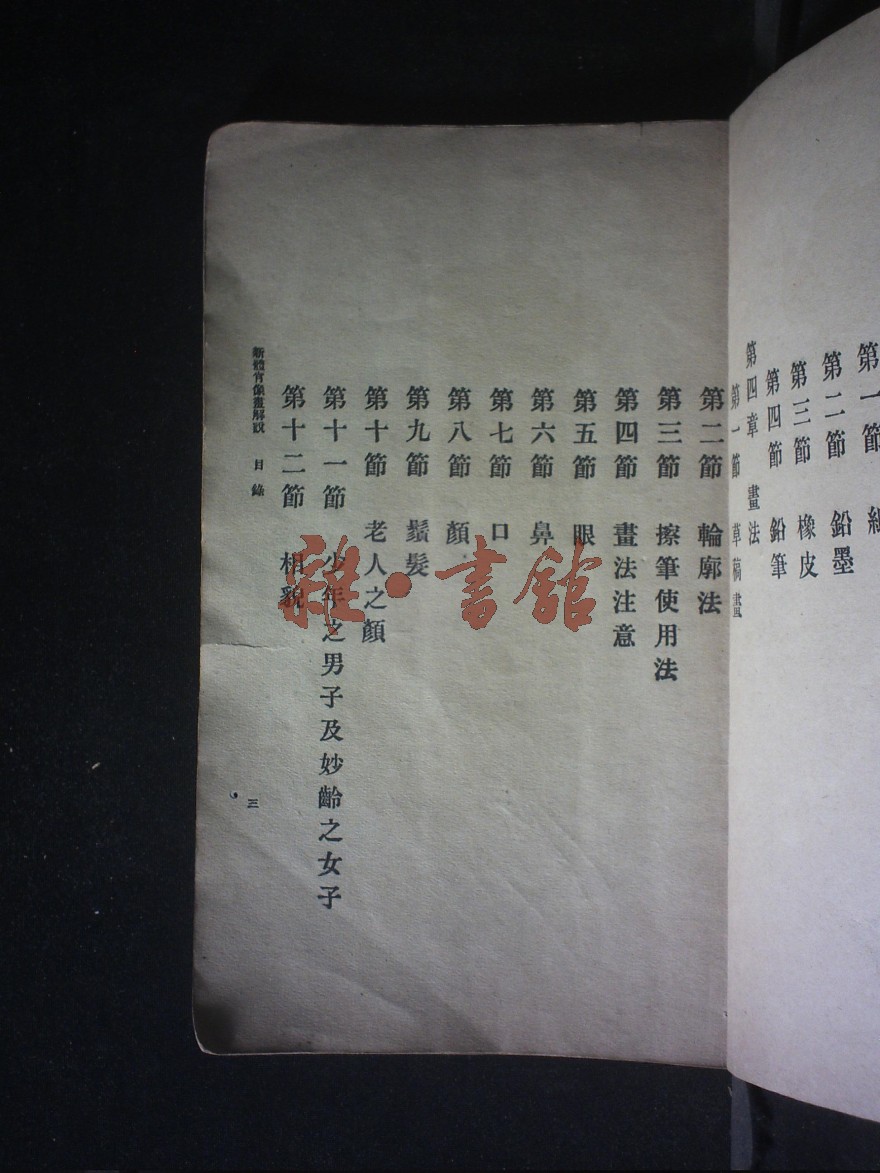 第一節
第二節 鉛墨
第三節 橡皮
第四節 鉛筆
第四章 畫法
第一節 草稿畫
第二節 輪廓法
第三節 擦筆使用法
第四節 畫法注意
第五節 眼
第六節 鼻
第七節 口
第八節 顏
第九節 鬚髮
第十節 老人之顏
第十一節 少年之男子及妙齡之女子
第十二節 相貌
新體肖像畫解説 目錄
三
雜·書館